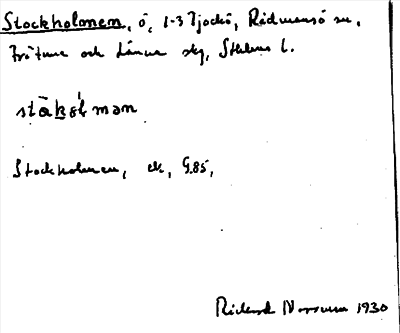 Stockholmen, ö, 1-3 Tjockö, Rådmansö sn,
Frötuna och Länna skg, Sthlms l.
stå̄kå̀lmən
Stockholmen, ek, G.85,
Rickard Norrman 1930